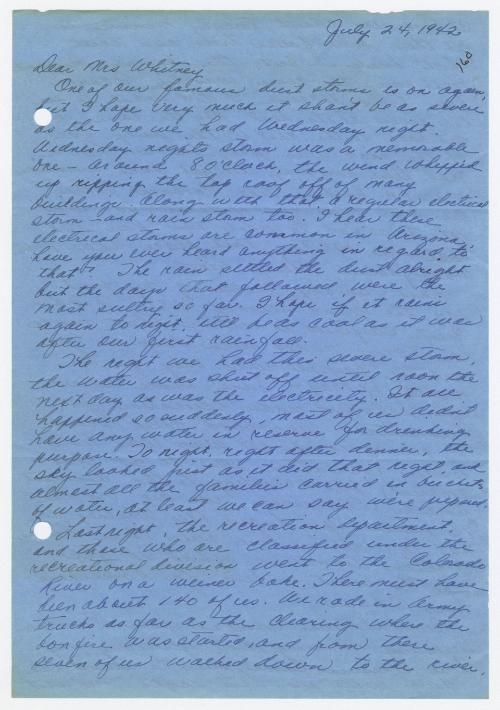 July 24, 1942
160
Dear Mrs Whitney
One of our famous dust storms is on again,
but I hope very much it shant be as severe
as the one we had Wednesday night.
Wednesday nights storm was a memorable
one — around 8 o'clock, the wind whipped
up ripping the top roof off of many
buildings. Along with that a regular electrical
storm — and rain storm too. I hear these
electrical storms are common in Arizona,
have you ever heard anything in regard to
that? The rain settled the dust alright
but the days that followed were the
most sultry so far. I hope if it rains
again to night, it'll be as cool as it was
after our first rainfall.
The night we had this severe storm,
the water was shut off until noon the
next day as was the electricity. It all
happened so suddenly, most of us didn't
have any water in reserve for drinking
purpose. To night, right after dinner, the
sky looked just as it did that night, and
almost all the families carried in buckets
of water, at least we can say we're prepared.
Last night, the recreation department
and those who are classified under the
recreational division went to the Colorado
River on a weiner bake. There must have
been about 140 of us. We rode in Army
trucks as far as the clearing where the
bonfire was started, and from there
seven of us walked down to the river.